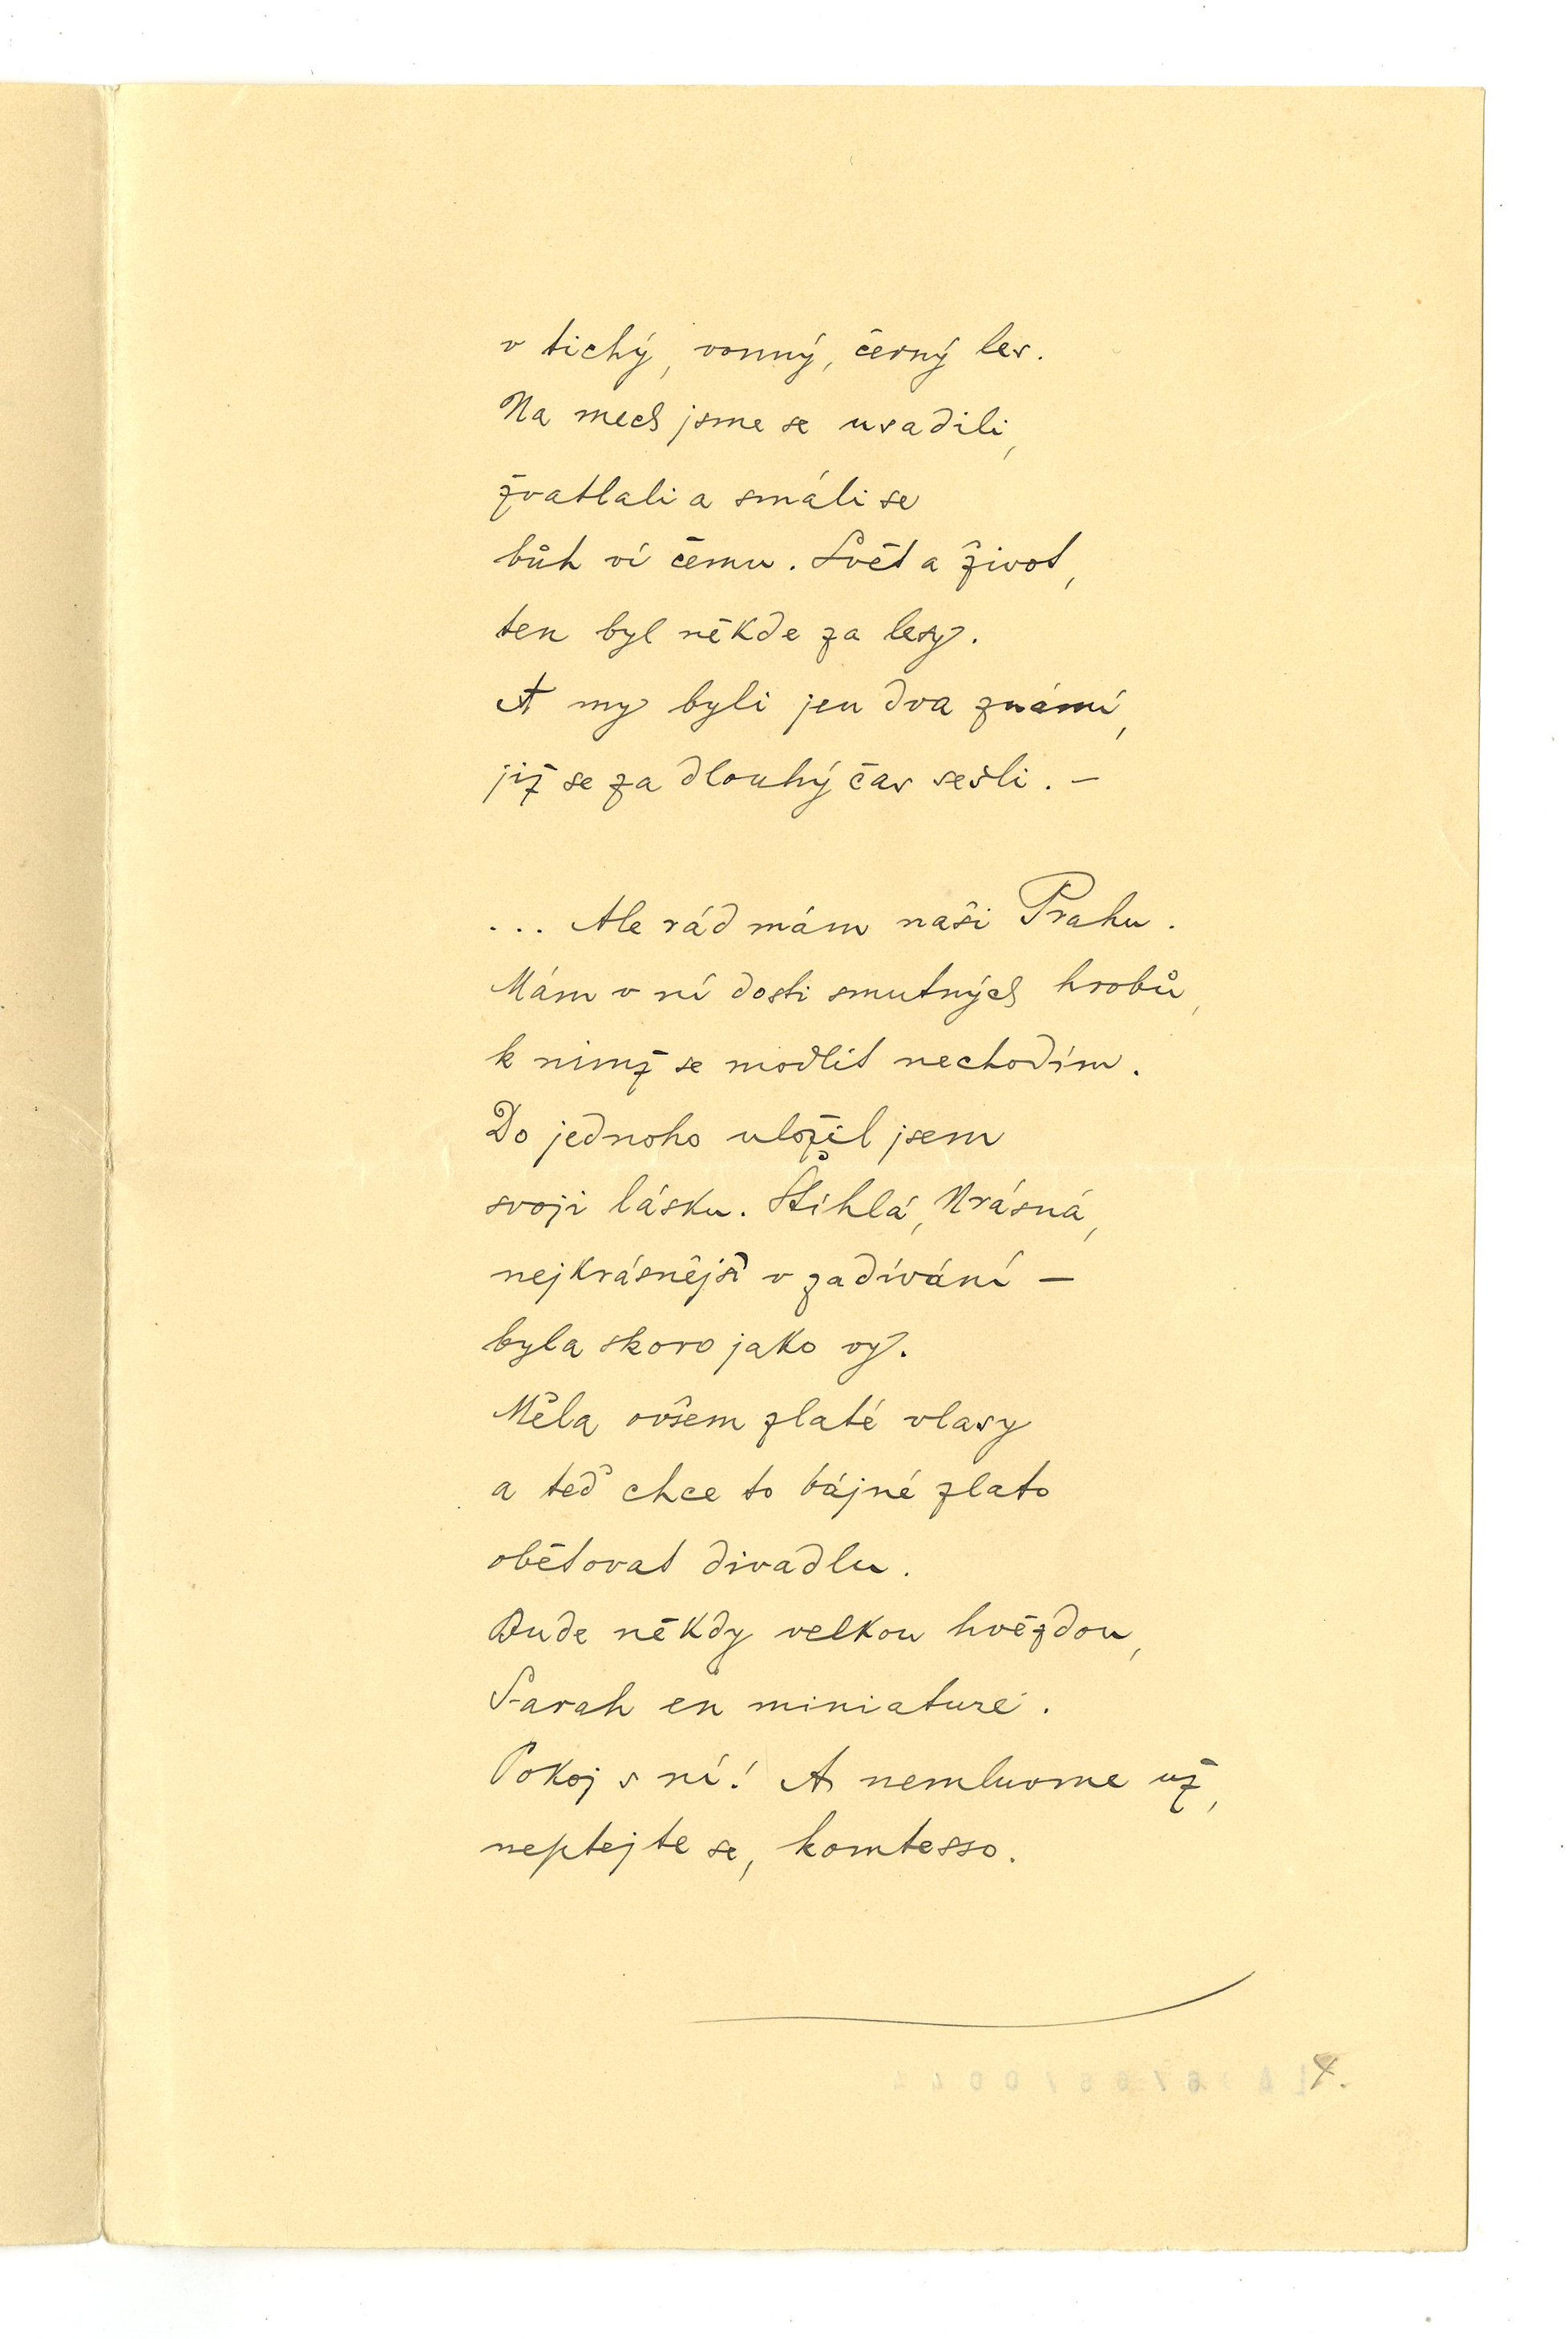 v tichý, vonný, černý les.
Na mech jsme se usadili,
žvatlali a smáli se
bůh ví čemu. Svět a život,
ten byl někde za lesy.
A my byli jen dva známí,
již se za dlouhý čas sešli. –
... Ale rád mám naši Prahu.
Mám v ní dosti smutných hrobů,
k nimž se modlit nechodím.
Do jednoho uložil jsem
svoji lásku. Štíhlá, krásná,
nejkrásnější v zadívání –
byla skoro jako vy.
Měla ovšem zlaté vlasy
a teď chce to bájné zlato
obětovat divadlu.
Bude někdy velkou hvězdou,
Sarah en miniature.
Pokoj s ní! A nemluvme už,
neptejte se, komtesso.